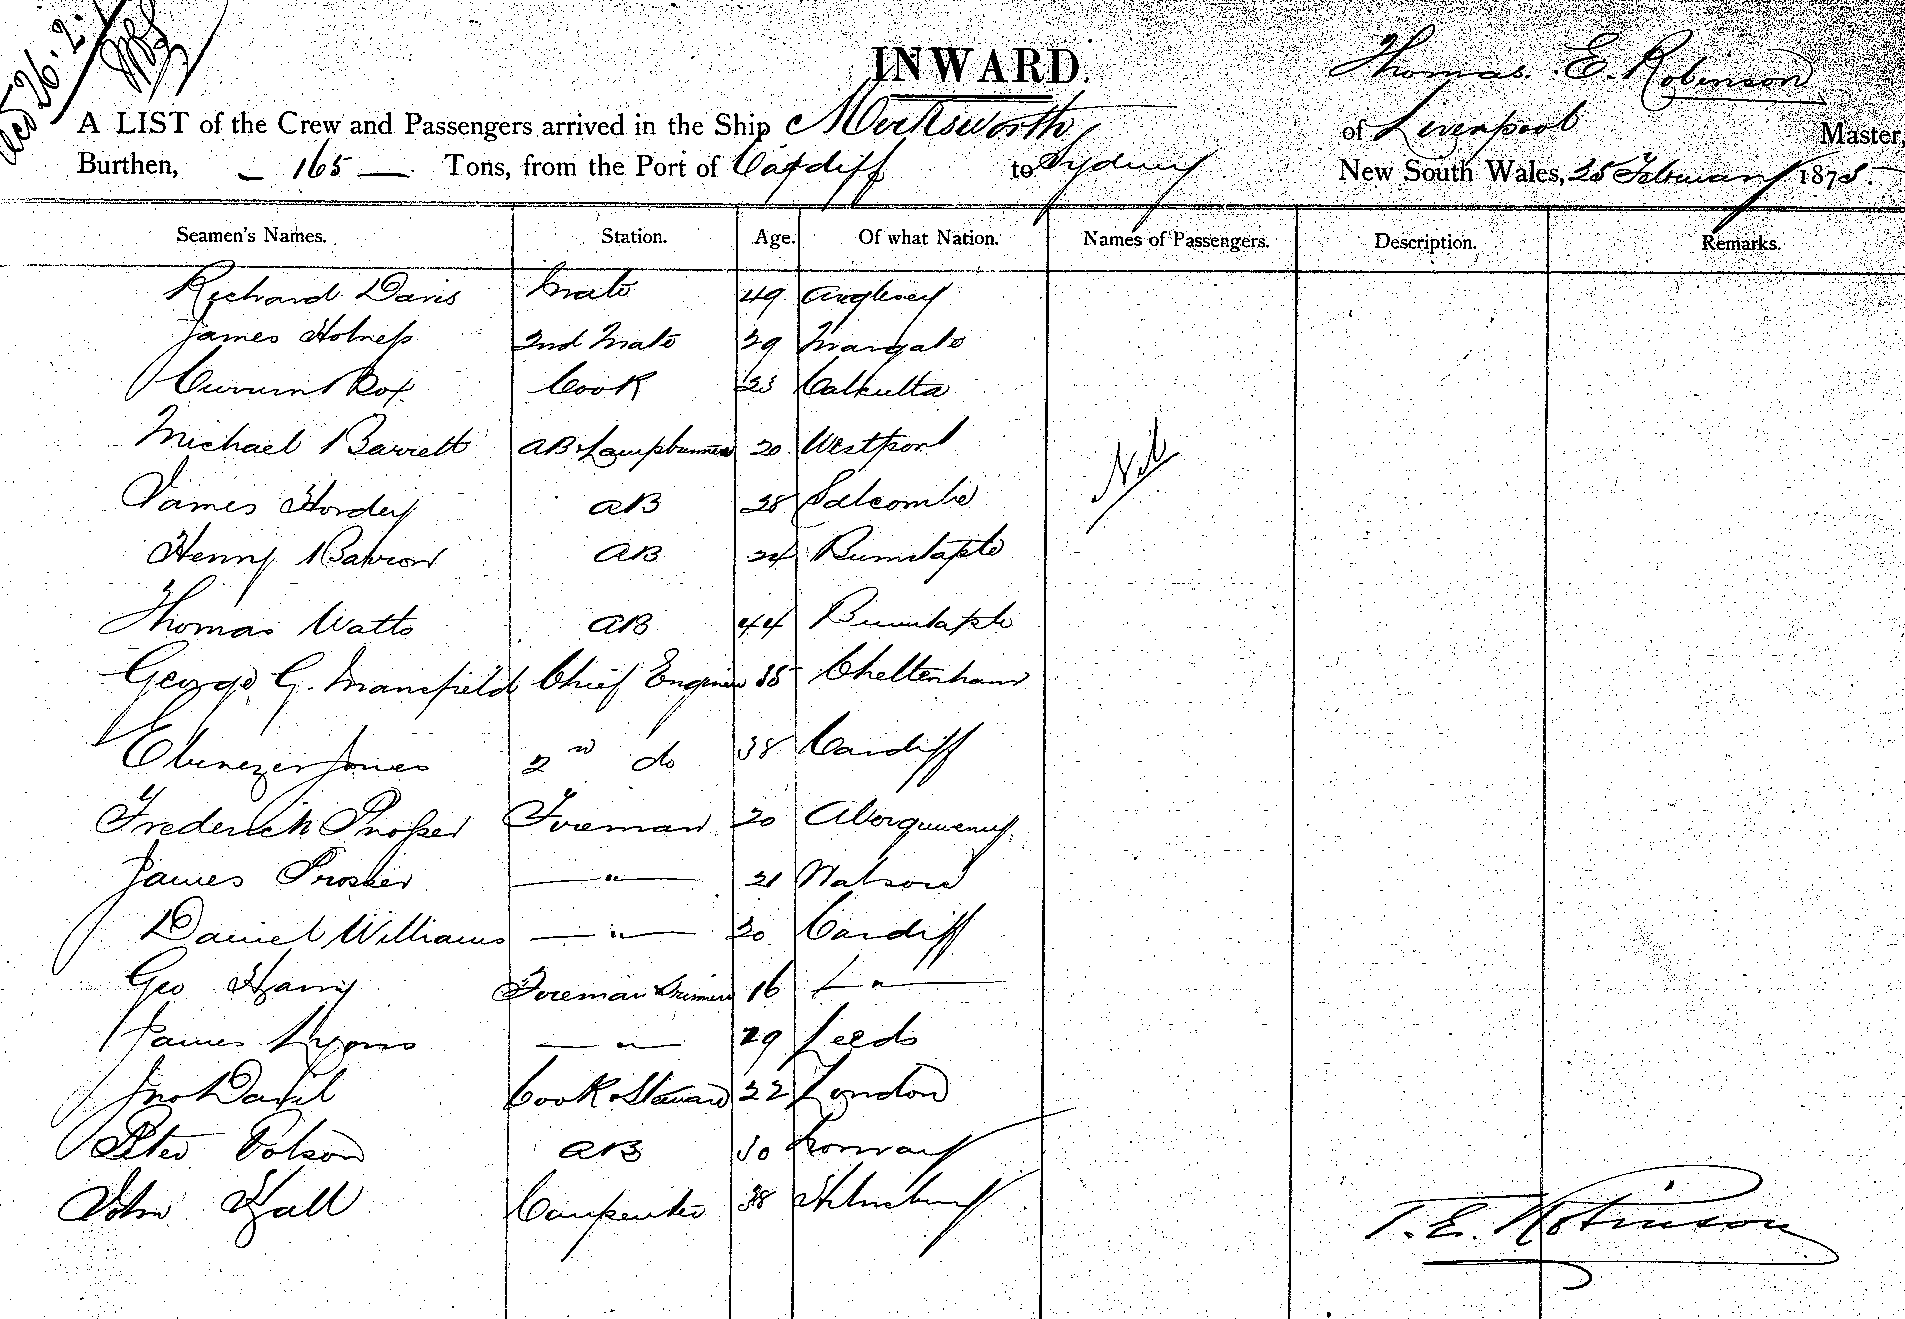 INWARD.
Thomas. E. Robinson
A LIST of the Crew and Passengers arrived in the Ship Merksworth of Liverpool Master,
Burthen, — 165 — Tons, from the Port of Cardiff to Sydney New South Wales, 25 February 1875.
Seamen's Names. Station. Age. Of what Nation. Names of Passengers. Description. Remarks.
Richard Davis Mate 49 Anglesey
James Holness 2nd Mate 29 Margate
Box Cook 23 Calcutta
Michael Barrett AB & Lamptrimmer 20 Westport
James Hordey AB 28 Salcombe
Nil
Henry Barron AB 24 Barnstaple
Thomas Watts AB 44 Barnstaple
George G. Mansfield Chief Engineer 35 Cheltenham
Ebenezer Jones 2nd do 38 Cardiff
Frederick Prosser Fireman 20 Abergavenny
James Prosser — " — 21
Daniel Williams — " — 20 Cardiff
Geo Harry Fireman & Trimmer 16 — " —
James Lyons — " — 29 Leeds
Jno Cook & Steward 22 London
Peter Polson AB 30 Norway
John Hall Carpenter 38
T. E. Robinson